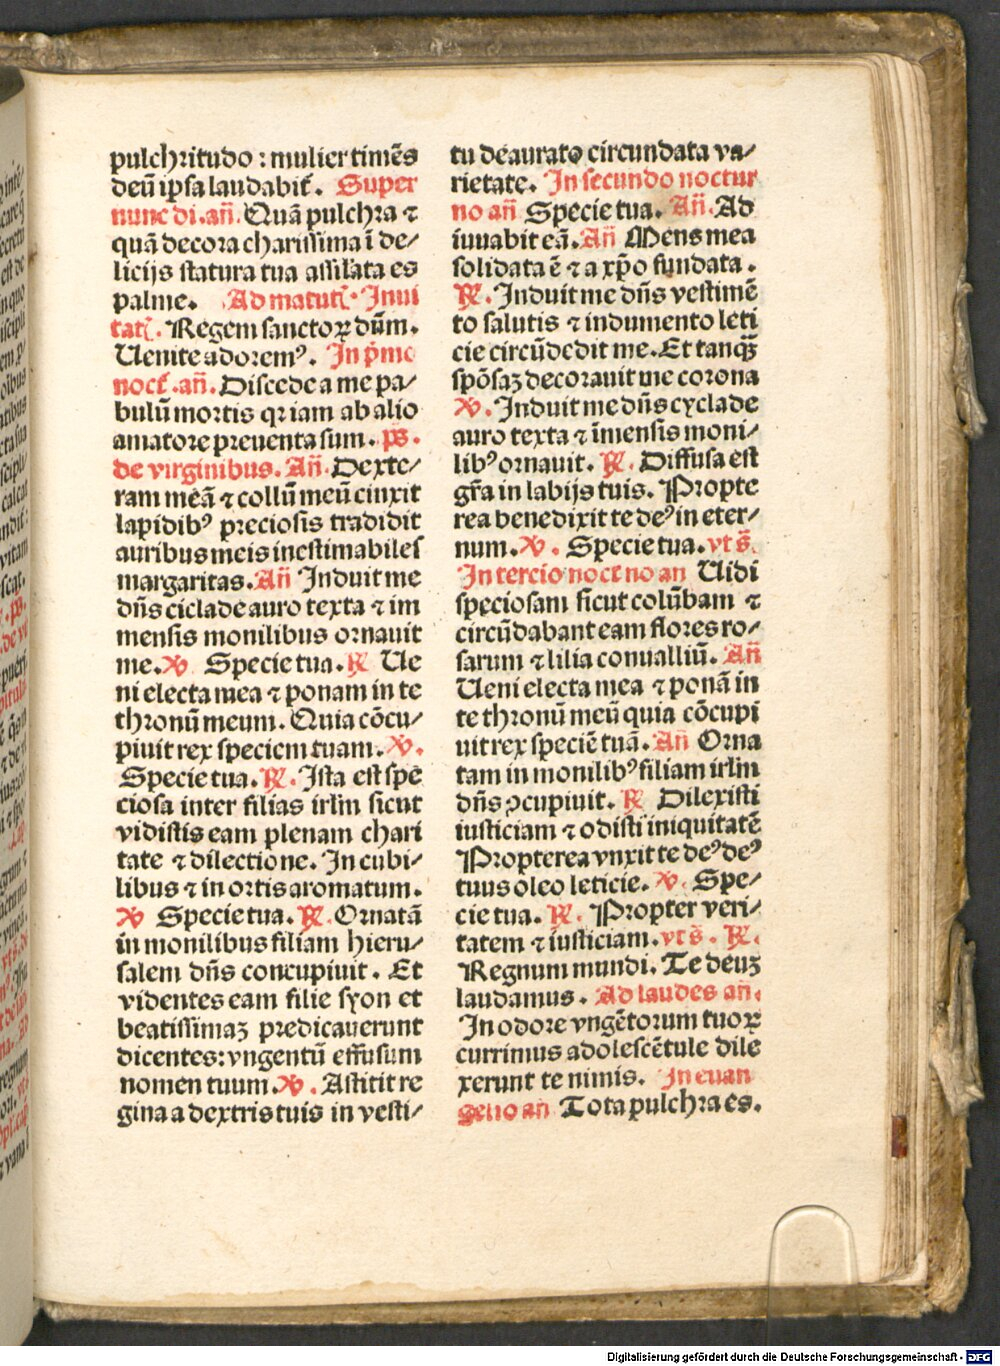 pulchritudo : mulier timēs
deū ipsa laudabiť. Super
nunc di. añ. Quā pulchra ⁊
quā decora charissima ī de⸗
licijs statura tua assilata es
palme. Ad matuť. Inui
tať. Regem sanctoꝝ dūm.
Uenite adoremꝰ. In pͥmo
nocť. añ. Discede a me pa⸗
bulū mortis qꝛ iam ab alio
amatore preuenta sum. ps.
de virginibus. Añ. Dexte⸗
ram meā ⁊ collū meū cinxit
lapidibꝰ preciosis tradidit
auribus meis inestimabiles
margaritas. Añ Induit me
dñs ciclade auro texta ⁊ im
mensis monilibus ornauit
me. ℣ Specie tua. ℟ Ue
ni electa mea ⁊ ponam in te
thronū meum. Quia cōcu⸗
piuit rex speciem tuam. ℣.
Specie tua. ℟. Ista est spe
ciosa inter filias irlm̄ sicut
vidistis eam plenam chari
tate ⁊ dilectione. In cubi⸗
libus ⁊ in ortis aromatum.
℣ Specie tua. ℟. Ornatā
in monilibus filiam hieru⸗
salem dñs concupiuit. Et
videntes eam filie syon et
beatissimaꝫ predicauerunt
dicentes: vngentū effusum
nomen tuum. ℣. Astitit re
gina a dextris tuis in vesti⸗
tu deaurato circundata va⸗
rietate. In secundo noctur
no añ Specie tua. Añ. Ad
iuuabit eā. Añ Mens mea
solidata ē ⁊ a xp̄o fundata.
℟. Induit me dñs vestimē
to salutis ⁊ indumento leti
cie circūdedit me. Et tanqꝫ
spōsaꝫ decorauit me corona
℣. Induit me dñs cyclade
auro texta ⁊ īmensis moni⸗
libꝰ ornauit. ℟. Diffusa est
gr̄a in labijs tuis. Propte
rea benedixit te deꝰ in eter⸗
num. ℣. Specie tua. vt s̄.
In tercio nocť no an Uidi
speciosam sicut colūbam ⁊
circūdabant eam flores ro⸗
sarum ⁊ lilia conualliū. Añ
Ueni electa mea ⁊ ponā in
te thronū meū quia cōcupi
uit rex speciē tuā. Añ Orna
tam in monilibꝰ filiam irlm̄
dñs ꝯcupiuit. ℟ Dilexisti
iusticiam ⁊ odisti iniquitatē
Propterea vnxit te deꝰ deꝰ
tuus oleo leticie. ℣. Spe⸗
cie tua. ℟. Propter veri⸗
tatem ⁊ iusticiam. vt s̄. ℟.
Regnum mundi. Te deuꝫ
laudamus. Ad laudes añ.
In odore vngētorum tuoꝝ
currimus adolescētule dile
xerunt te nimis. In euan
gelio an Tota pulchra es.
Digitalisierung gefördert durch die Deutsche Forschungsgemeinschaft - DFG